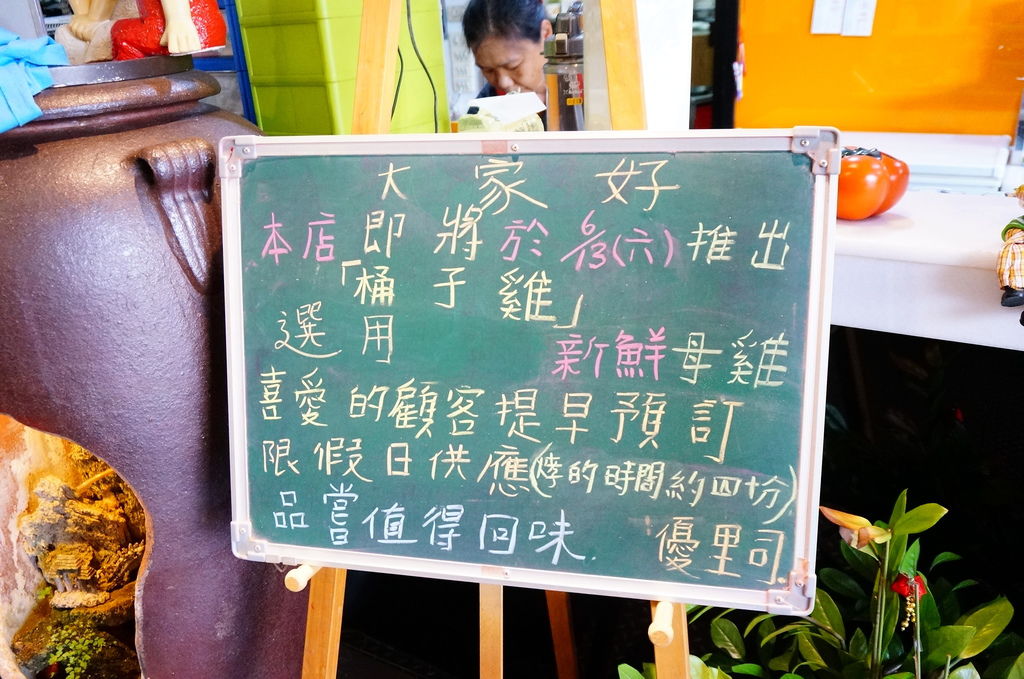 大家好
本店即將於6/13(六)推出
「桶子雞」
選用 新鮮母雞
喜愛的顧客提早預訂
限假日供應(烤的時間約四十分)
品嘗值得回味.
優里司